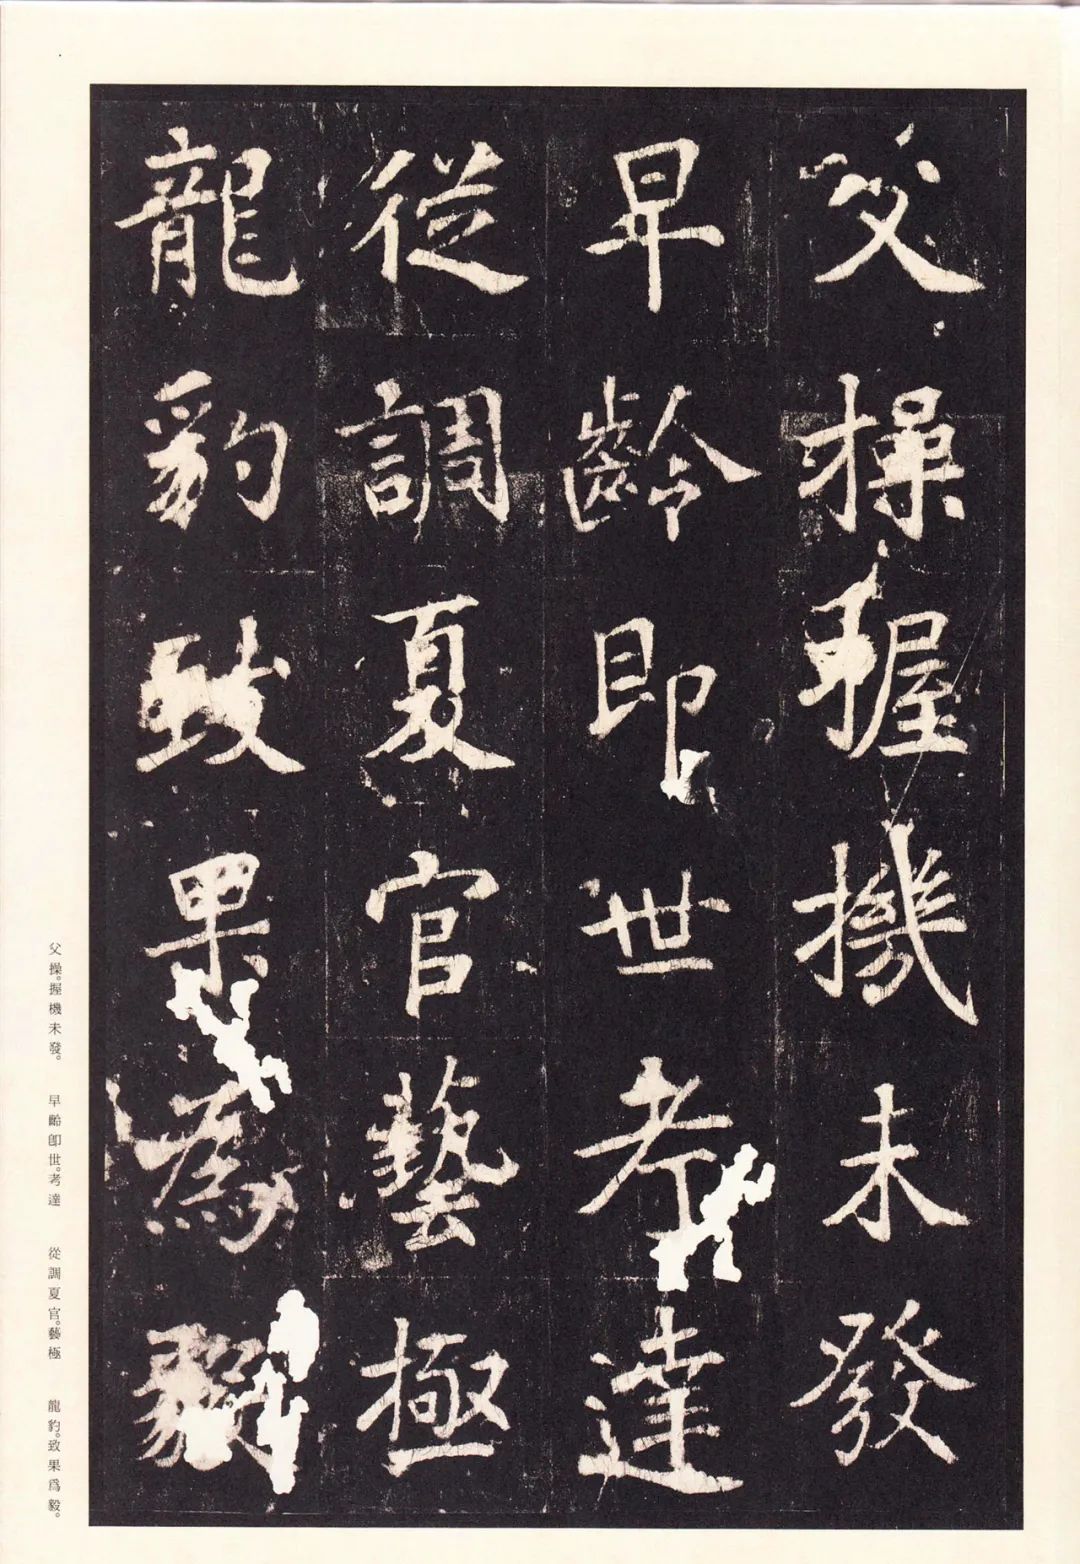 父操握機未發
早齡即世考達
從調夏官藝極
龍豹致果為毅
父操。握機未發。
早齡即世。考達
從調夏官。藝極
龍豹。致果爲毅。